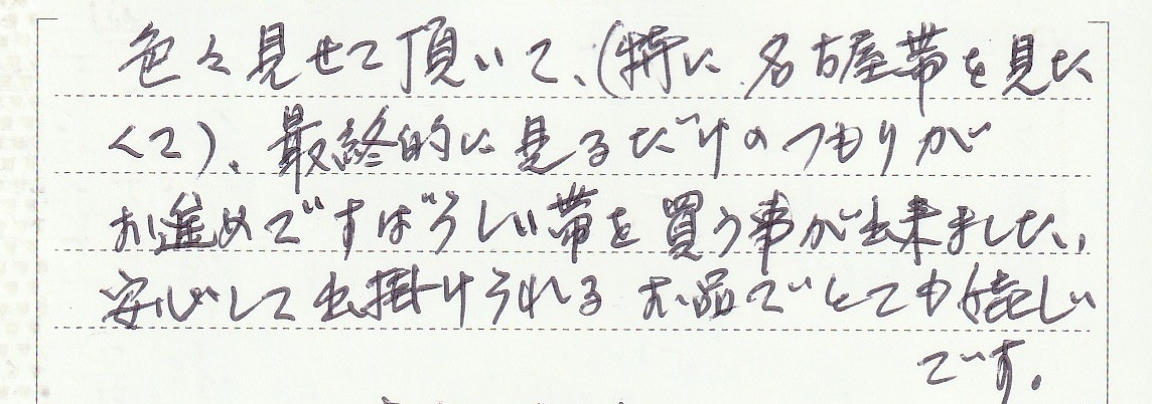 色々見せて頂いて、(特に名古屋帯を見た
くて)、最終的に見るだけのつもりが
お進めですばらしい帯を買う事が出来ました、
安心して出掛けられるお品でとても嬉しい
です。